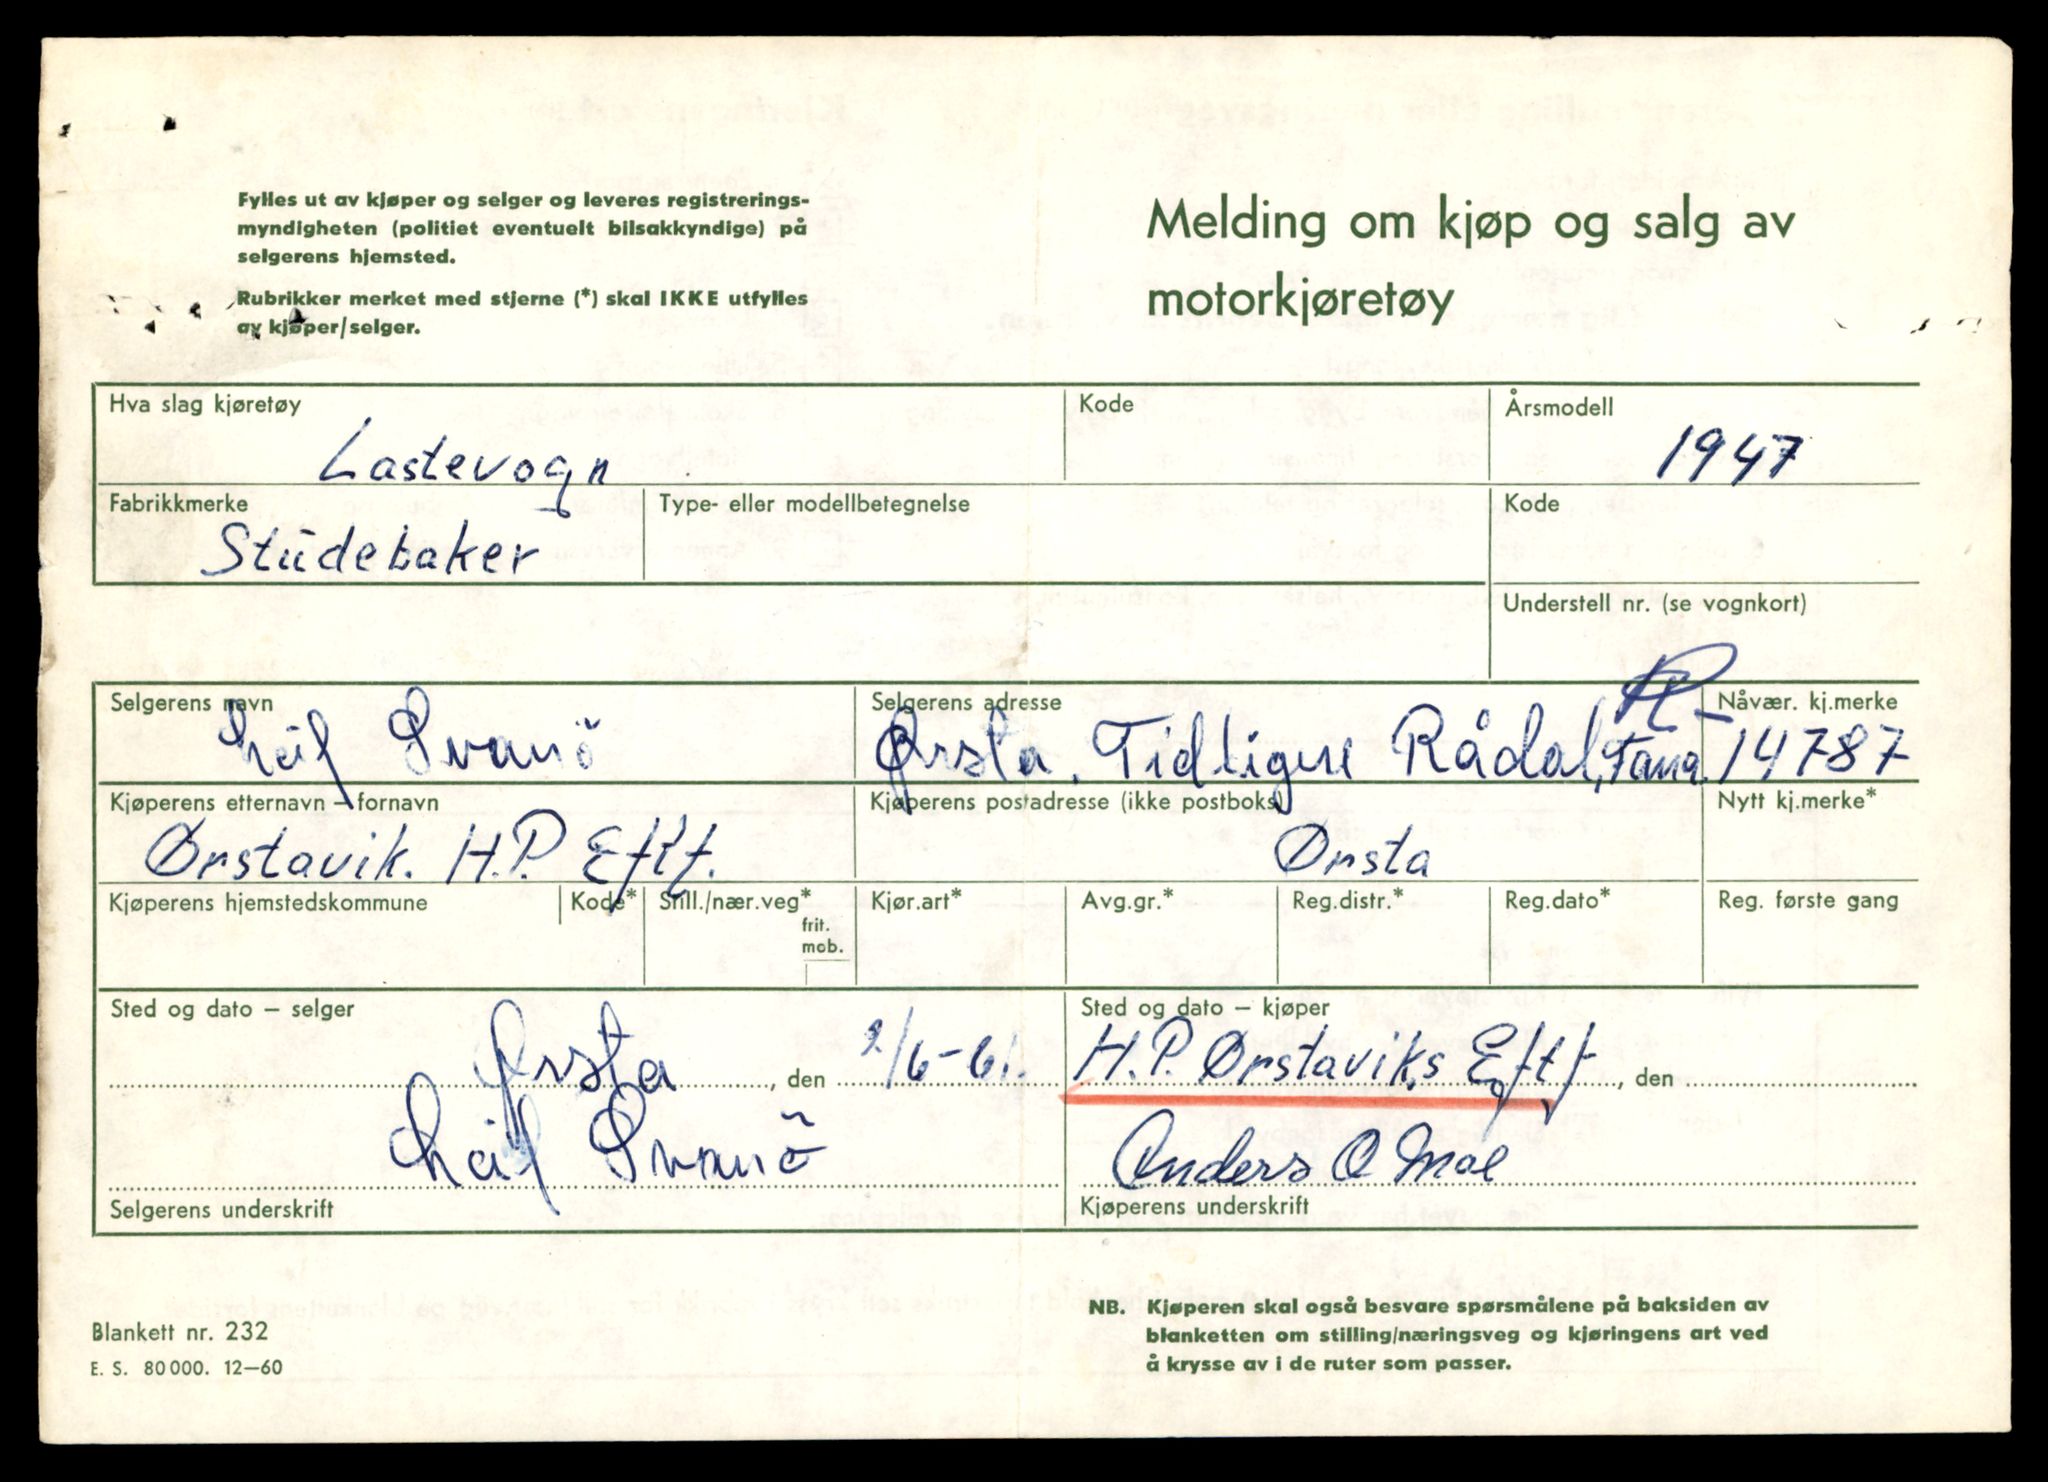 Fylles ut av kjøper og selger og leveres registrerings-
myndigheten (politiet eventuelt bilsakkyndige) på
selgerens hjemsted.
Rubrikker merket med stjerne (*) skal IKKE utfylles
av kjøper/selger.
Melding om kjøp og salg av
motorkjøretøy
Hva slag kjøretøy
Lastevogn
Kode
Årsmodell
1947
Fabrikkmerke
Studebaker
Type- eller modellbetegnelse
Kode
Understell nr. (se vognkort)
Selgerens navn
Leif Svanö
Selgerens adresse
Ørsta. Tidligere Rådal, Fana.
Nåvær. kj.merke
14787
Kjøperens etternavn – fornavn
Ørstavik. H.P. Eftf.
Kjøperens postadresse (ikke postboks)
Ørsta
Nytt kj.merke*
Kjøperens hjemstedskommune
Kode*
Still./nær.veg*
frit.
mob.
Kjør.art*
Avg.gr.*
Reg.distr.*
Reg.dato*
Reg. første gang
Sted og dato – selger
Ørsta, den 2/6-61.
Leif Svanö
Selgerens underskrift
Sted og dato – kjøper
H.P. Ørstaviks Eftf, den
Anders O Moe
Kjøperens underskrift
Blankett nr. 232
E. S. 80 000. 12–60
NB. Kjøperen skal også besvare spørsmålene på baksiden av
blanketten om stilling/næringsveg og kjøringens art ved
å krysse av i de ruter som passer.